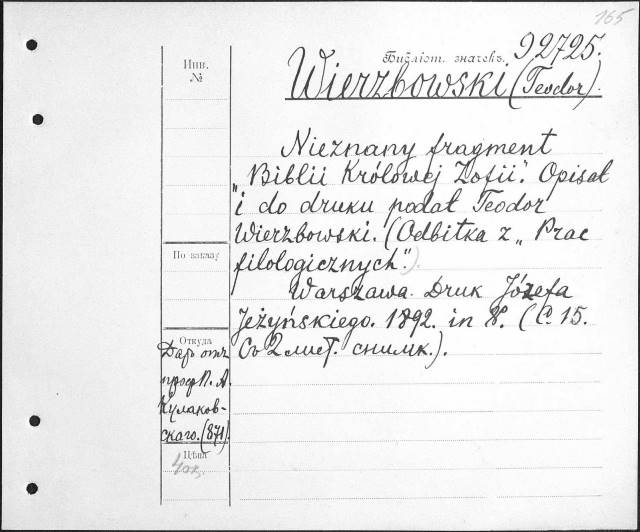 165
Библіот. значекъ. 92725.
Инв. №
Wierzbowski (Teodor).
Nieznany fragment
„Biblii Królowej Zofii". Opisał
i do druku podał Teodor
Wierzbowski. (Odbitka z „Prac
filologicznych".)
По заказу
Warszawa. Druk Józefa
Jeżyńskiego. 1892. in 8. (С. 15.
Съ 2 лист. снимк.).
Откуда
Даръ отъ
проф. П. А.
Кулаков-
скаго. (871).
Цѣна